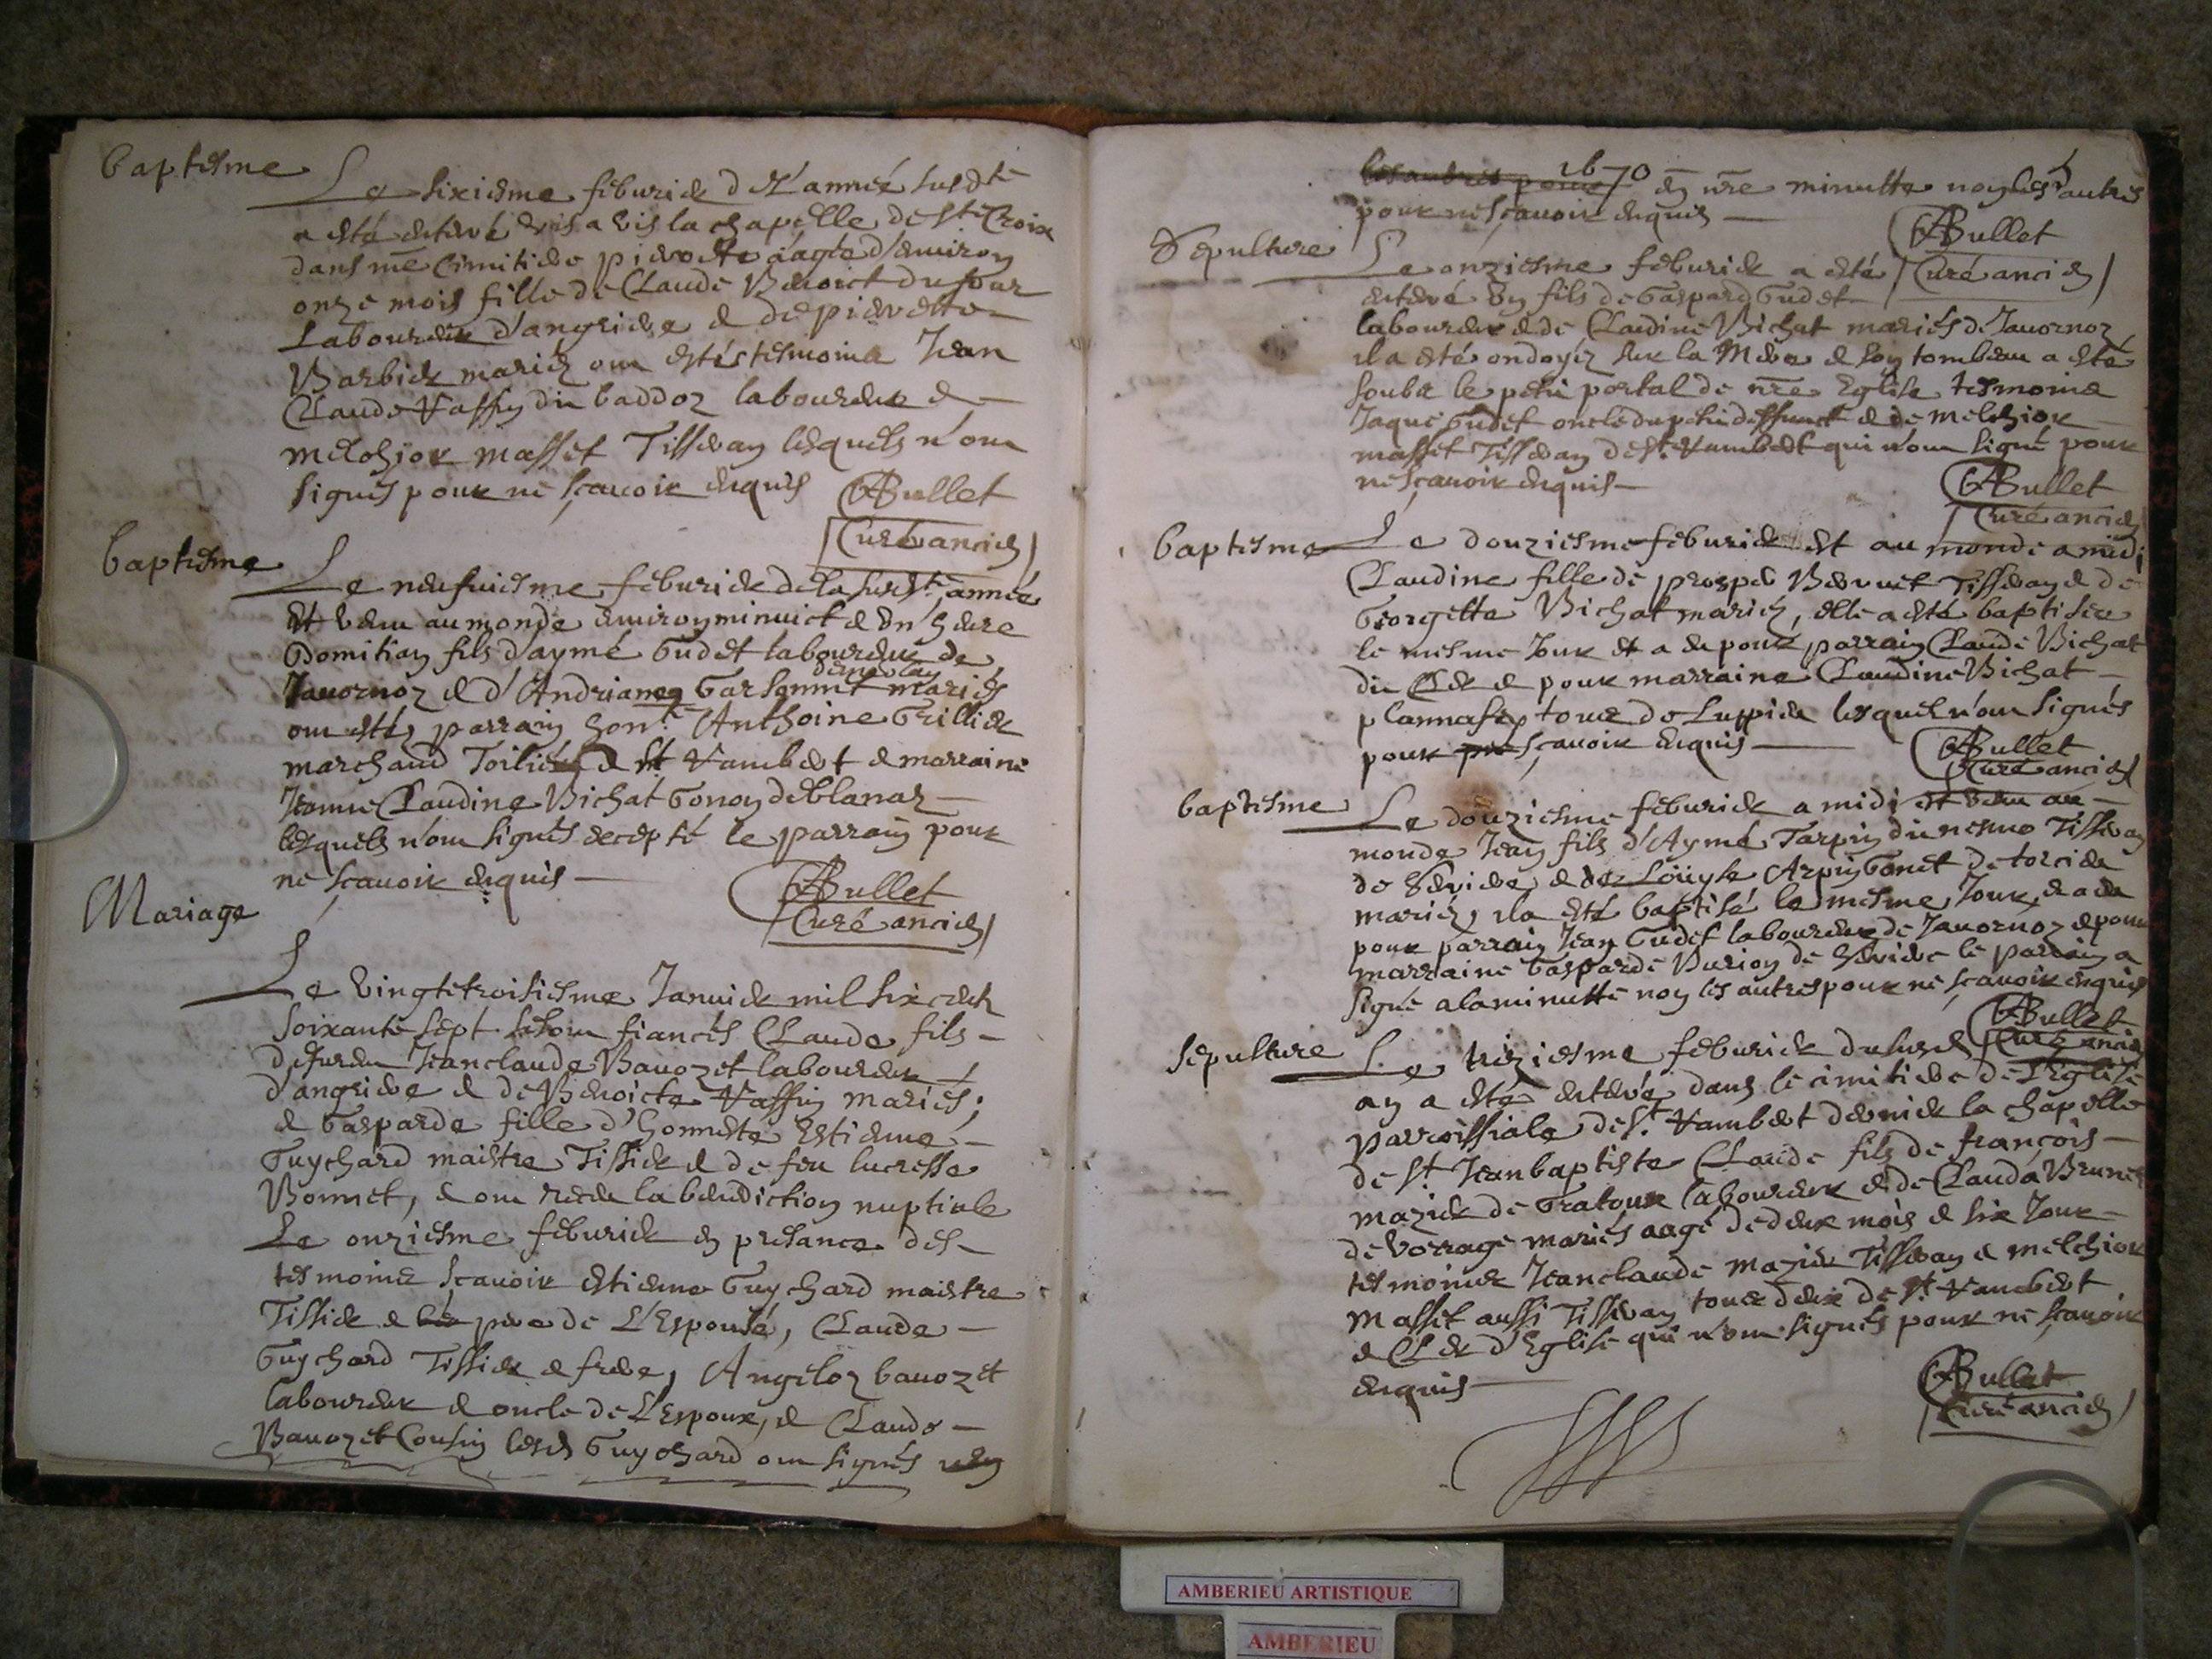 baptesme
Le sixiesme feburier de l'année susdte
a esté enterré vis a vis la chapelle de Ste Croix
dans nre cimitiere pierrette aagée d'environ
onze mois fille de Claude Benoict dufour
Laboureur d'angrieres & de pierrette
Barbier mariez ont estés tesmoins Jean
Claude Vassin du baddoz laboureur &
melchior masset Tisseran lesquels n'ont
signés pour ne sçavoir enquis
ABullet
Curé ancien
baptesme
Le neufuiesme feburier de la susdte année
est venu au monde environ minuict & un heure
Domitian fils d'aymé Gudet laboureur de
Javornoz & d'Andrianne Garsonnet mariés
ont estés parrain hont Anthoine Grillier
marchand Toilier de St Rambert & marraine
Jeanne Claudine Bichat Gonon de blanaz
lesquels n'ont signés excepté le parrain pour
ne sçavoir enquis
ABullet
Curé ancien
Mariage
Le vingtetroisiesme Januier mil six cents
soixante sept se sont fiancés Claude fils
de feu Jeanclaude Bavozet laboureur
d'angrieres & de Benoicte Vassin mariés;
& Gasparde fille d'honneste Estienne
Guychard maistre Tissier & de feu lucresse
Bonnet, & ont receu la benediction nuptiale
Le onziesme feburier en presance des
tesmoins sçavoir estienne Guychard maistre
Tissier & pere de L'Espousé, Claude
Guychard Tissier & frere, Angeloz bavozet
laboureur & oncle de L'Espoux, & Claude
Bavozet Cousin lesd Guychard ont signés
1670
les autres pour en nre minutte non les autres
pour ne sçavoir enquis
ABullet
Curé ancien
Sepulture
Le onziesme feburier a esté
enterré un fils de Gaspard Gudet
laboureur & de Claudine Bichat mariés de Javornoz
il a esté ondoyéz sur la Mere & son tombeau a esté
soubz le petit portal de nre Eglise tesmoins
Jaque Gudet oncle du petit deffunct & de melchior
masset Tisseran de St. Rambert qui n'ont signé pour
ne sçavoir enquis
ABullet
Curé ancien
baptesme
Le douziesme feburier est au monde a midi
Claudine fille de prosper Bernet Tisseran & de
Georgette Bichat mariez, elle a esté baptisée
le mesme Jour et a eu pour parrain Claude Bichat
dit Clerc & pour marraine Claudine Bichat
tous de Luppieu lesquels n'ont signés
pour ne sçavoir enquis
ABullet
Curé ancien
baptesme
Le douziesme feburier a midi est venu au
monde Jean fils d'Aymé Tarpin dit Tisseran
de & de Louyse Arpin Gonet de torcieu
mariéz, il a esté baptisé le mesme Jour, & a eu
pour parrain Jean Gudet laboureur de Javornoz & pour
marraine Gasparde Burion de le parrain a
signé a la minutte non les autres pour ne sçavoir enquis
ABullet
Curé ancien
sepulture
Le treziesme feburier du susd
an a esté enterré dans le cimitiere de L'Eglise
parroissiale de St. Rambert derrier la chapelle
de St Jean baptiste Claude fils de françois
mazier de Gratoux laboureur & de Claude Brunet
de Vorrage mariés aagé de deux mois & six Jour
tesmoins Jeanclaude mazier Tisseran & melchior
masset aussi Tisseran tous deux de St. Rambert
& Clerc d'Eglise qui n'ont signés pour ne sçavoir
enquis
ABullet
Curé ancien
AMBERIEU ARTISTIQUE
AMBERIEU